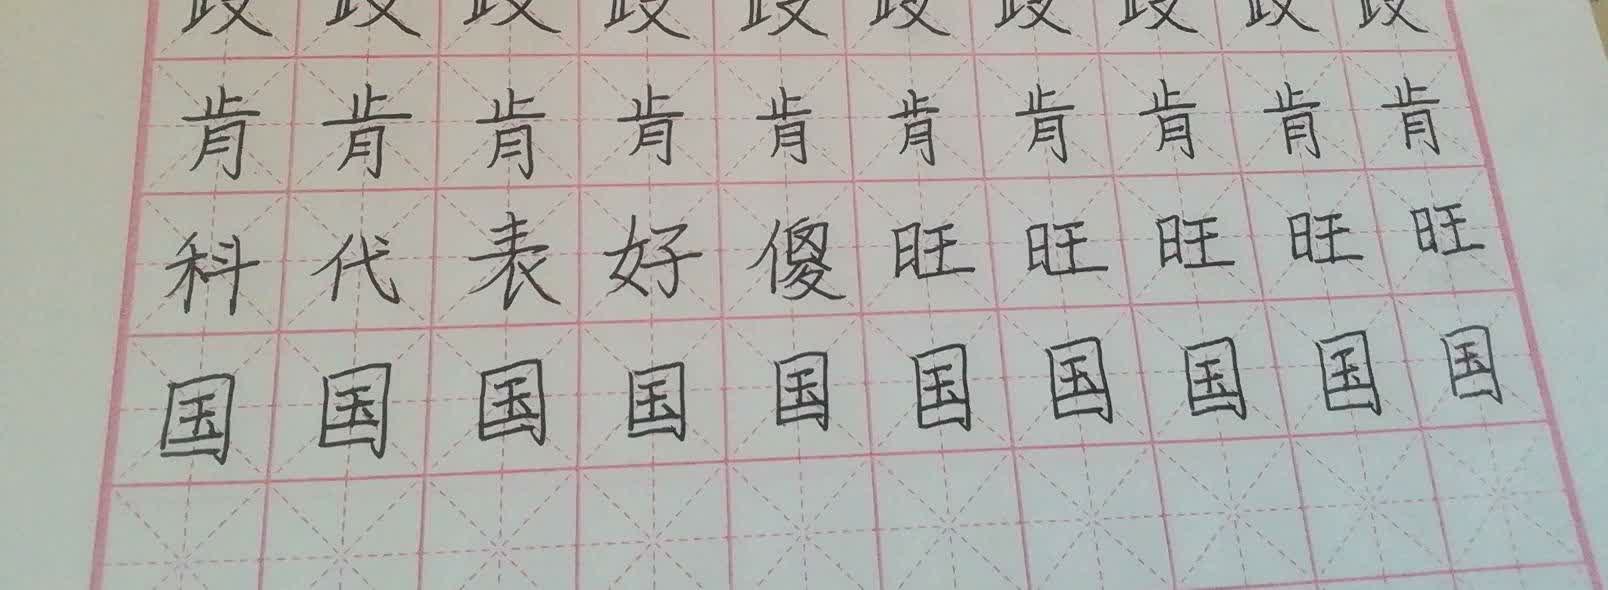 肯肯肯肯肯肯肯肯肯肯
科代表好傻旺旺旺旺旺
国国国国国国国国国国